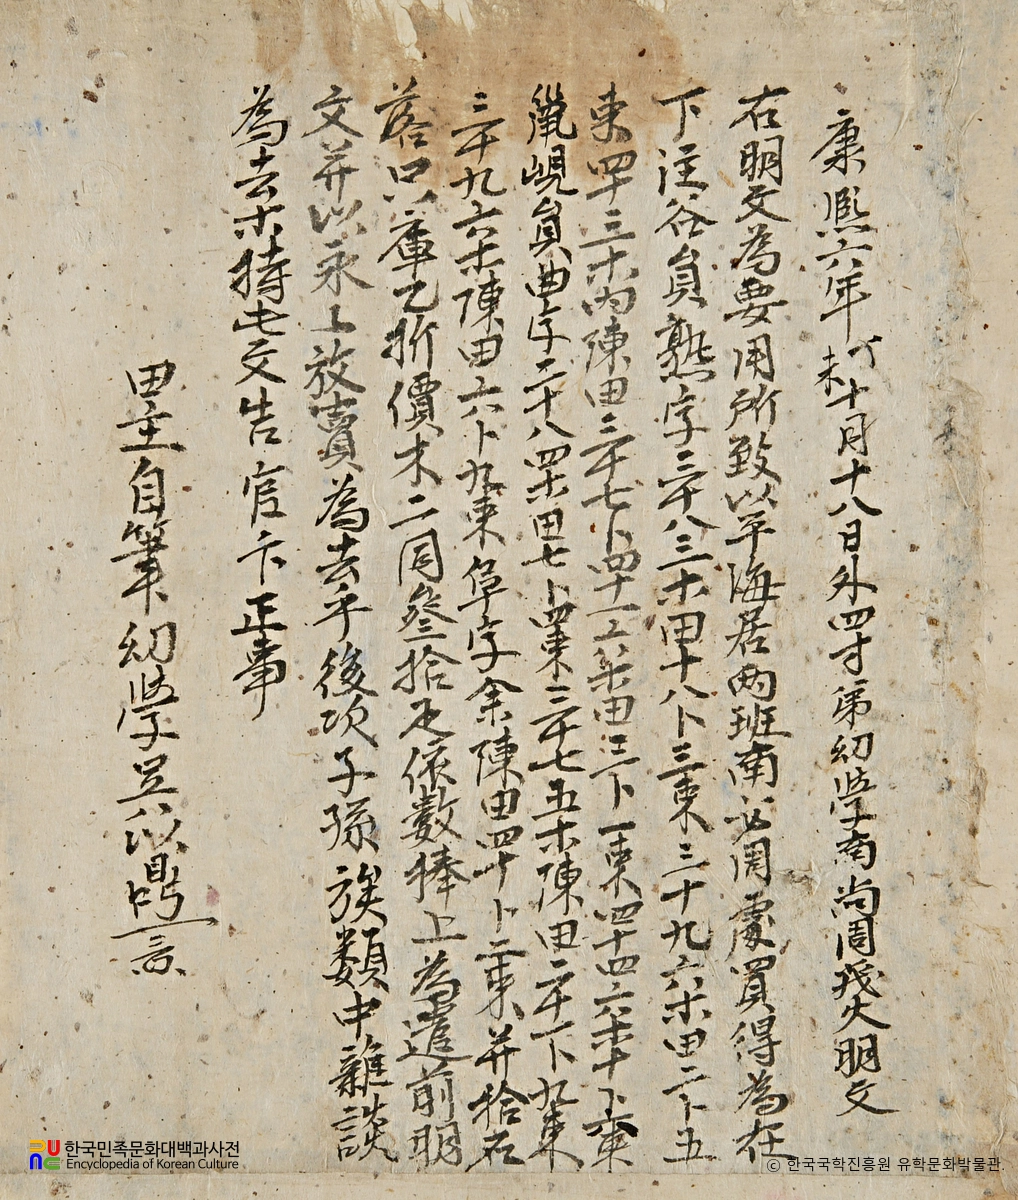 康熙六年丁未十月十八日外四寸弟幼學南尚周戔火明文
右明文為要用所致以平海居兩班南必周處買得為在
下注谷員熟字三十八三木田十八卜三束三十九六木田二卜五
束四十三木內陳田二十七卜四十一二木田三卜一束四十四六木十卜六束
峴員曲字二十八四木田七卜四束三十七五木陳田二十卜九束
三十九六木陳田六卜九束阜字余陳田四十卜二束并拾石
落只庫乙折價木二同叄拾疋依數捧上為遣前明
文并以永永放賣為去乎後次子孫族類中雜談
為去木持此文告官卞正事
田主自筆幼學吳以
한국민족문화대백과사전
Encyclopedia of Korean Culture
© 한국국학진흥원 유학문화박물관.